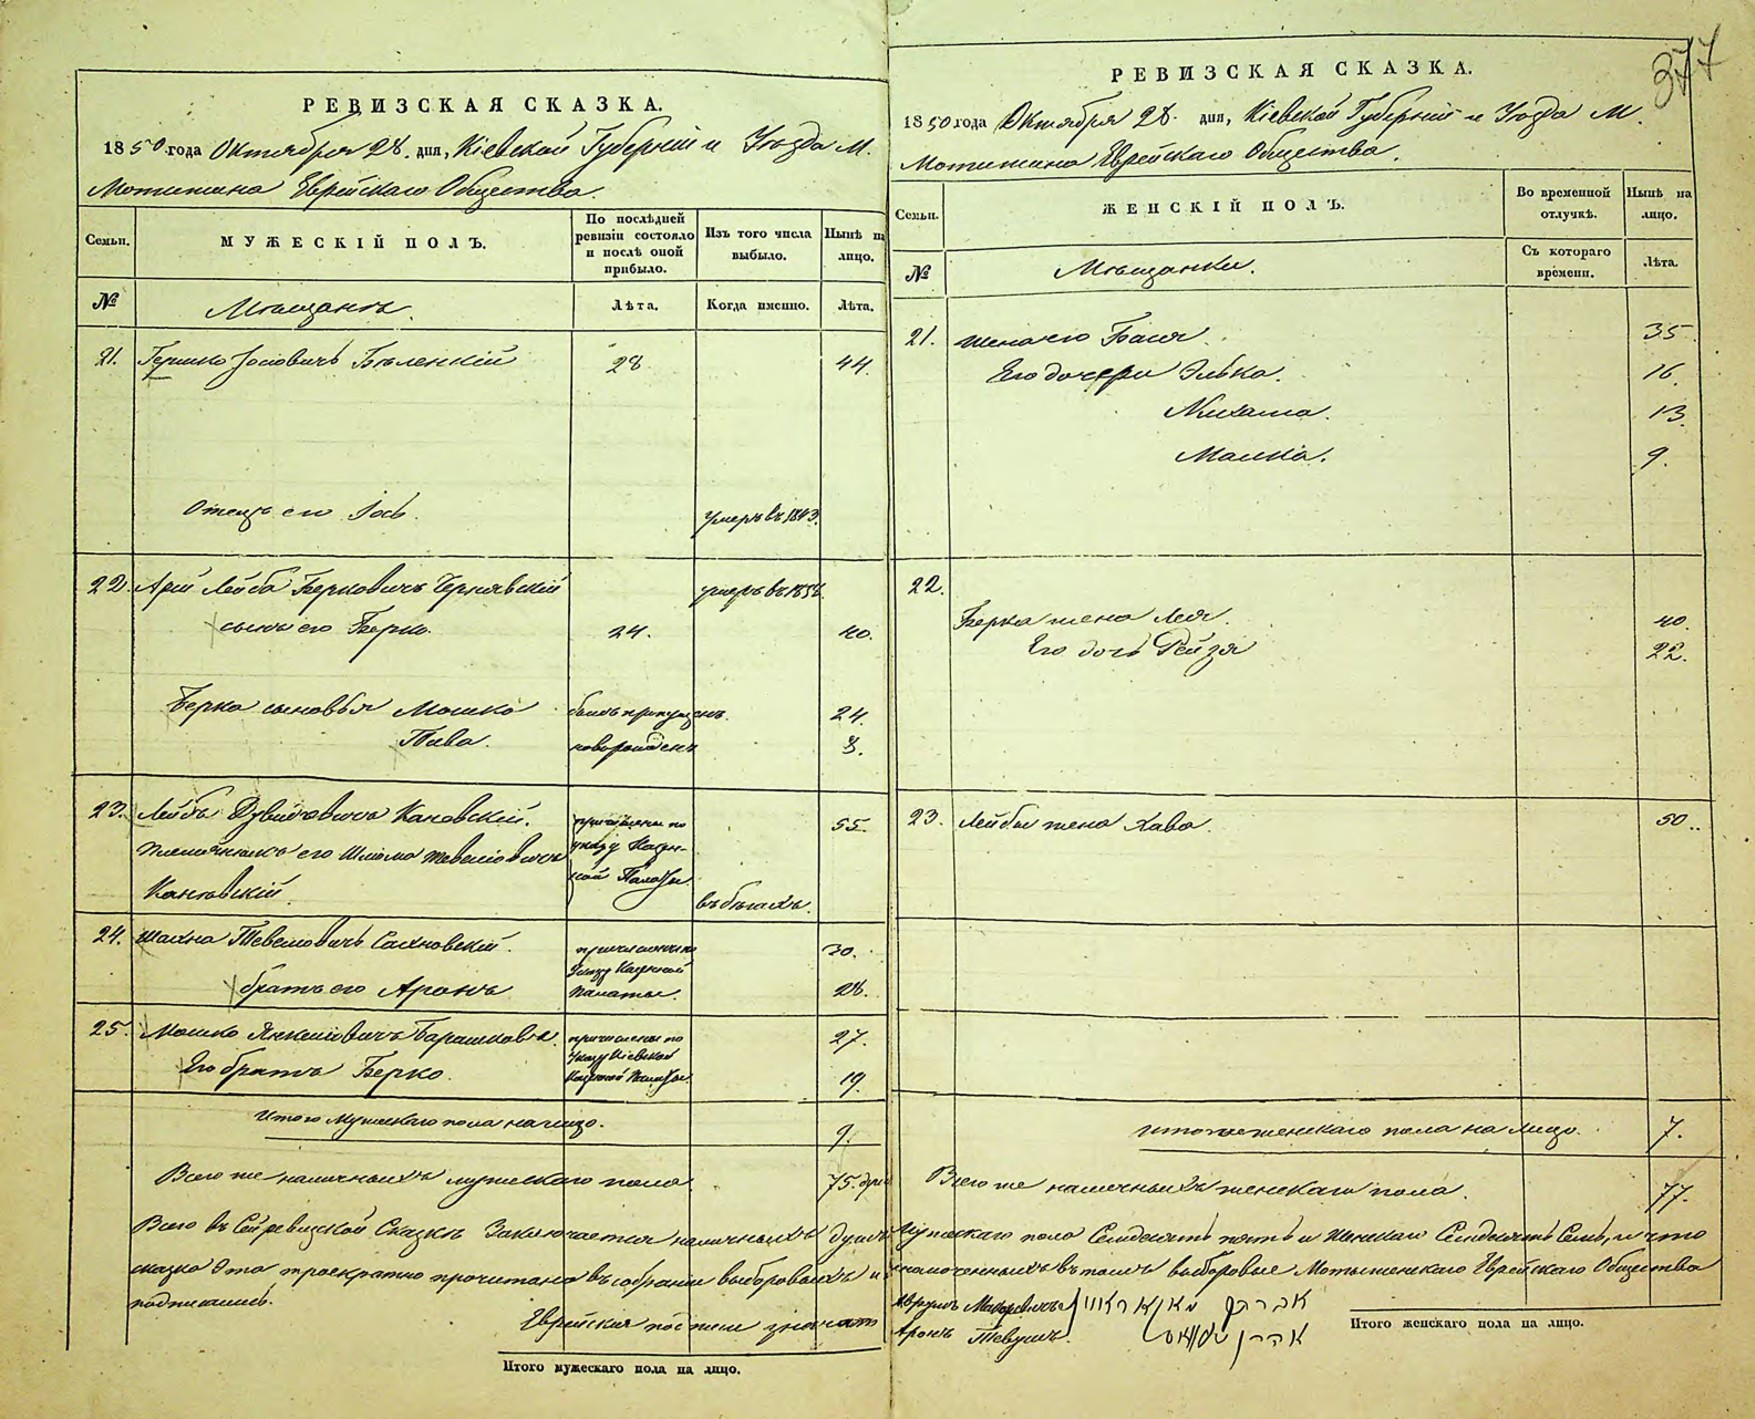 РЕВИЗСКАЯ СКАЗКА.
1850 года Октября 28. дня, Кіевской Губерніи и Уезда М.
Мотижина Еврейскаго Общества.
Семьи.
МУЖЕСКІЙ ПОЛЪ.
По послѣдней ревизіи состояло и послѣ оной прибыло.
Изъ того числа выбыло.
Нынѣ на лицо.
№
Мѣщанъ.
Лѣта.
Когда именно.
Лѣта.
21. Гершко Іосіовичъ Бѣленкій 28 44.
Отецъ его Іось. умеръ въ 1843.
22. Арій Лейба Берковичъ Чернявскій умеръ въ
сынъ его Берко. 24. 40.
Берка сыновья Мошко былъ пропущенъ. 24.
новорожденъ 8.
23. Лейбъ Дувидовичъ Кановскій. причислены по 55.
племянникъ его Шлома Тевеліовичъ указу Казен-
Кановскій. ной Палаты. въ бѣгахъ.
24. Шахна Тевелювичъ Сахновскій. причислены по 30.
Указу Казенной
братъ его Аронъ Палаты. 28.
25. Мошко Янкеліовичъ Барашковъ. причислены по 27.
Указу Кіевской
Его братъ Берко. Казенной Палаты. 19.
Итого Мужескаго пола налицо. 9.
Всего же наличныхъ мужескаго пола. 75. душ
Всего въ сей ревизской Сказкѣ Заключается наличныхъ душъ
сказка эта троекратно прочитана въ собраніи выборовыхъ и
подписались.
Еврейскія подписи значат
Итого мужескаго пола на лицо.
377
РЕВИЗСКАЯ СКАЗКА.
1850 года Октября 28. дня, Кіевской Губерніи и Уезда М.
Мотижина Еврейскаго Общества.
Семьи.
ЖЕНСКІЙ ПОЛЪ.
Во временной отлучкѣ.
Нынѣ на лицо.
№
Мѣщанки.
Съ котораго времени.
Лѣта.
21. Жена его Бася. 35
Его дочери Элька. 16.
Нихама. 13.
Малка. 9.
22.
Берка жена Лея. 40.
Его дочь Рейзя 22.
23. Лейбы жена Хава. 50.
Итого женскаго пола на лицо. 7.
Всего же наличныхъ женскаго пола. 77.
Мужскаго пола Семдесятъ пять и Женскаго Семдесятъ Семь, и что
выборовые Мотыжинскаго Еврейскаго Общества
Аврумъ Макаревичъ אברהם מאקאראוויץ
Аронъ Тевушъ. אהרן
Итого женскаго пола на лицо.